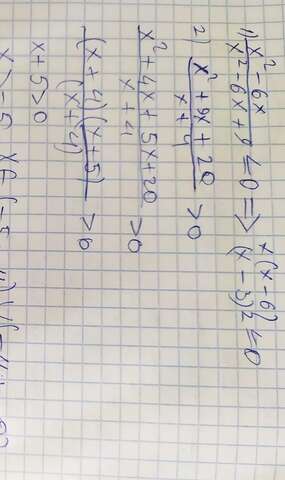 1) x² - 6x / x² - 6x + 9 ≤ 0 ⇒ x(x - 6) / (x - 3)² ≤ 0
2) x² + 9x + 20 / x + 4 > 0
x² + 4x + 5x + 20 / x + 4 > 0
(x + 4)(x + 5) / (x + 4) > 0
x + 5 > 0
x > -5